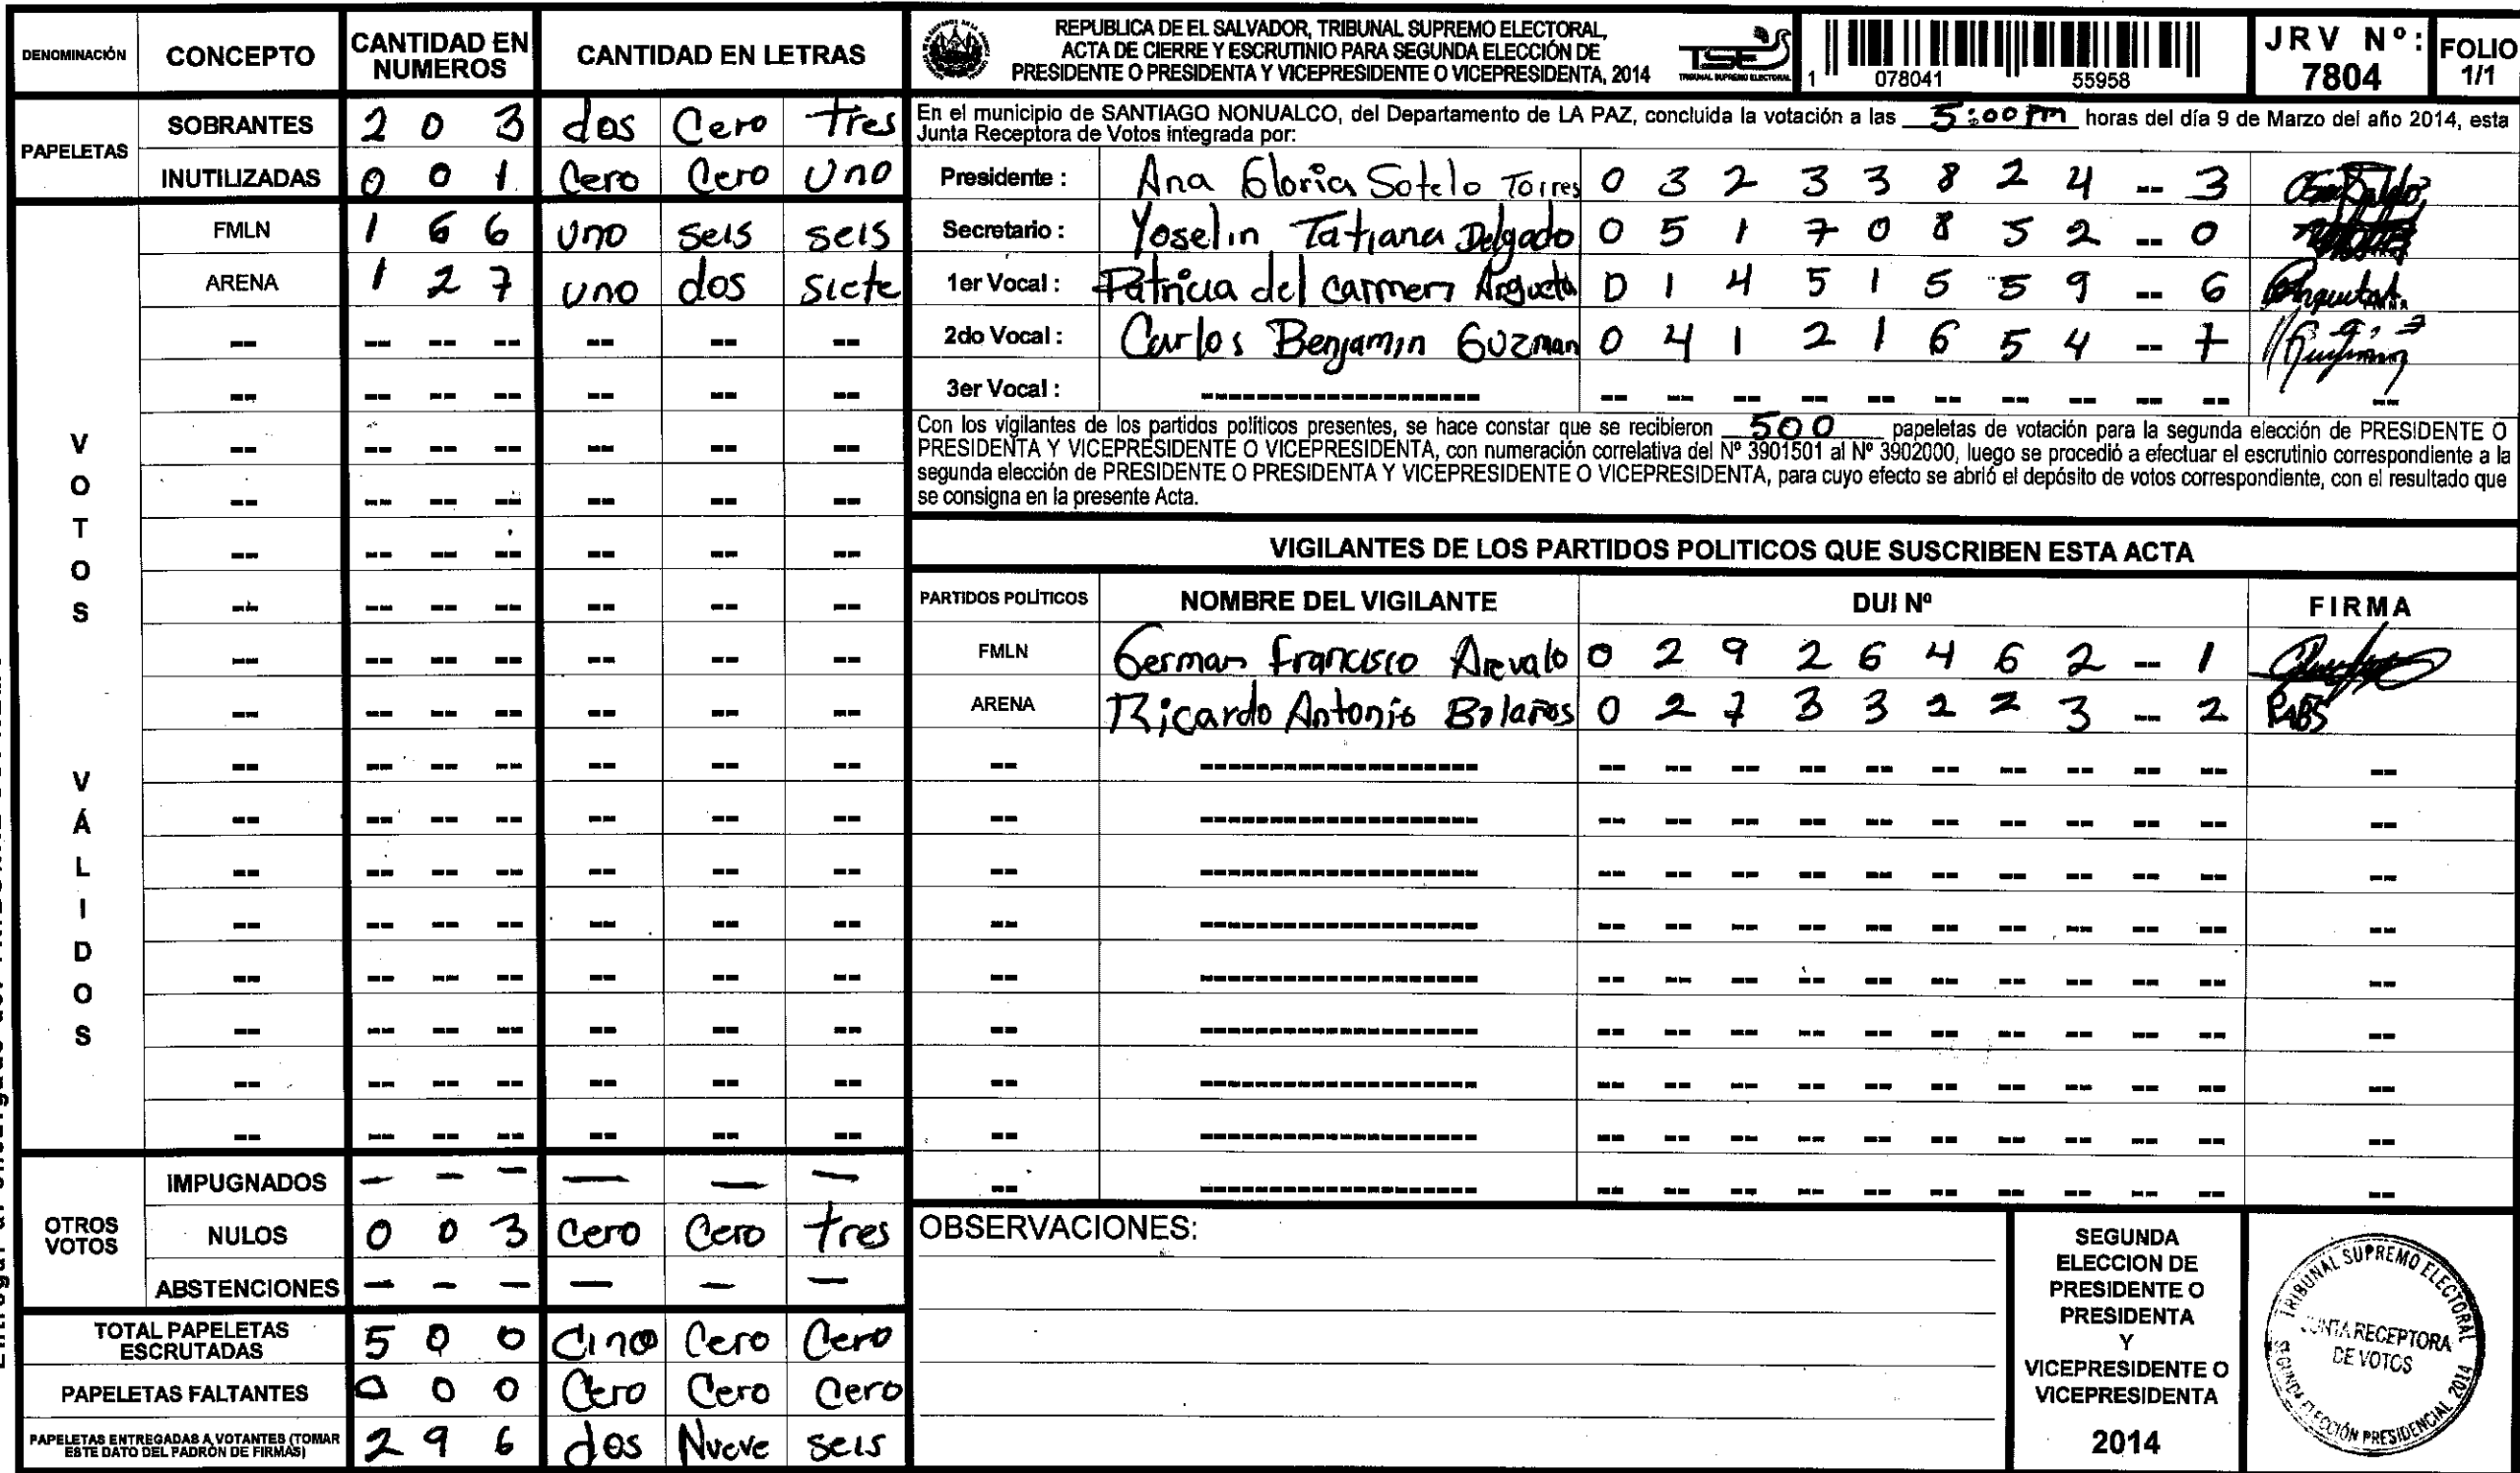 DENOMINACIÓN CONCEPTO CANTIDAD EN NUMEROS CANTIDAD EN LETRAS
PAPELETAS
SOBRANTES 2 0 3 dos Cero tres
INUTILIZADAS 0 0 1 Cero Cero Uno
VOTOS VÁLIDOS
FMLN 1 6 6 uno seis seis
ARENA 1 2 7 uno dos siete
OTROS VOTOS
IMPUGNADOS - - - - - -
NULOS 0 0 3 Cero Cero tres
ABSTENCIONES - - - - - -
TOTAL PAPELETAS ESCRUTADAS 5 0 0 Cinco Cero Cero
PAPELETAS FALTANTES 0 0 0 Cero Cero Cero
PAPELETAS ENTREGADAS A VOTANTES (TOMAR ESTE DATO DEL PADRÓN DE FIRMAS) 2 9 6 dos Nueve seis
REPUBLICA DE EL SALVADOR, TRIBUNAL SUPREMO ELECTORAL,
ACTA DE CIERRE Y ESCRUTINIO PARA SEGUNDA ELECCIÓN DE
PRESIDENTE O PRESIDENTA Y VICEPRESIDENTE O VICEPRESIDENTA, 2014
TSE
TRIBUNAL SUPREMO ELECTORAL
1 078041 55958
JRV Nº: 7804
FOLIO 1/1
En el municipio de SANTIAGO NONUALCO, del Departamento de LA PAZ, concluida la votación a las 5:00 pm horas del día 9 de Marzo del año 2014, esta
Junta Receptora de Votos integrada por:
Presidente : Ana Gloria Sotelo Torres 0 3 2 3 3 8 2 4 -- 3
Secretario : Yoselin Tatiana Delgado 0 5 1 7 0 8 5 2 -- 0
1er Vocal : Patricia del carmen Argueta 0 1 4 5 1 5 5 9 -- 6
2do Vocal : Carlos Benjamin Guzman 0 4 1 2 1 6 5 4 -- 7
3er Vocal :
Con los vigilantes de los partidos políticos presentes, se hace constar que se recibieron 500 papeletas de votación para la segunda elección de PRESIDENTE O
PRESIDENTA Y VICEPRESIDENTE O VICEPRESIDENTA, con numeración correlativa del Nº 3901501 al Nº 3902000, luego se procedió a efectuar el escrutinio correspondiente a la
segunda elección de PRESIDENTE O PRESIDENTA Y VICEPRESIDENTE O VICEPRESIDENTA, para cuyo efecto se abrió el depósito de votos correspondiente, con el resultado que
se consigna en la presente Acta.
VIGILANTES DE LOS PARTIDOS POLITICOS QUE SUSCRIBEN ESTA ACTA
PARTIDOS POLÍTICOS NOMBRE DEL VIGILANTE DUI Nº FIRMA
FMLN German francisco Arevalo 0 2 9 2 6 4 6 2 -- 1
ARENA Ricardo Antonio Bolaños 0 2 7 3 3 2 2 3 -- 2 RABS
OBSERVACIONES:
SEGUNDA
ELECCION DE
PRESIDENTE O
PRESIDENTA
Y
VICEPRESIDENTE O
VICEPRESIDENTA
2014
TRIBUNAL SUPREMO ELECTORAL
JUNTA RECEPTORA
DE VOTOS
SEGUNDA ELECCIÓN PRESIDENCIAL 2014